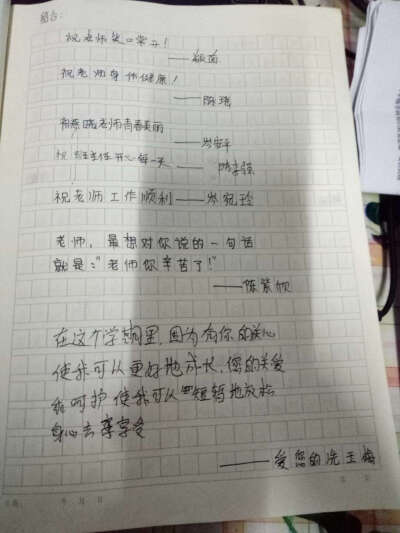 稿台:
祝老师笑口常开!
——敏茵
祝老师身体健康!
——陈瑶
祝 老师青春美丽
——岑安平
祝班主任开心每一天——陈 强
祝老师工作顺利——岑宛玲
老师,最想对你说的一句话
就是:"老师你辛苦了!"
——陈紫欣
在这个学期里,因为有你的关心
使我可以更好地成长,您的关爱
和呵护使我可以 短暂地放松
身心去享受
——爱您的冼玉梅
年 月 日